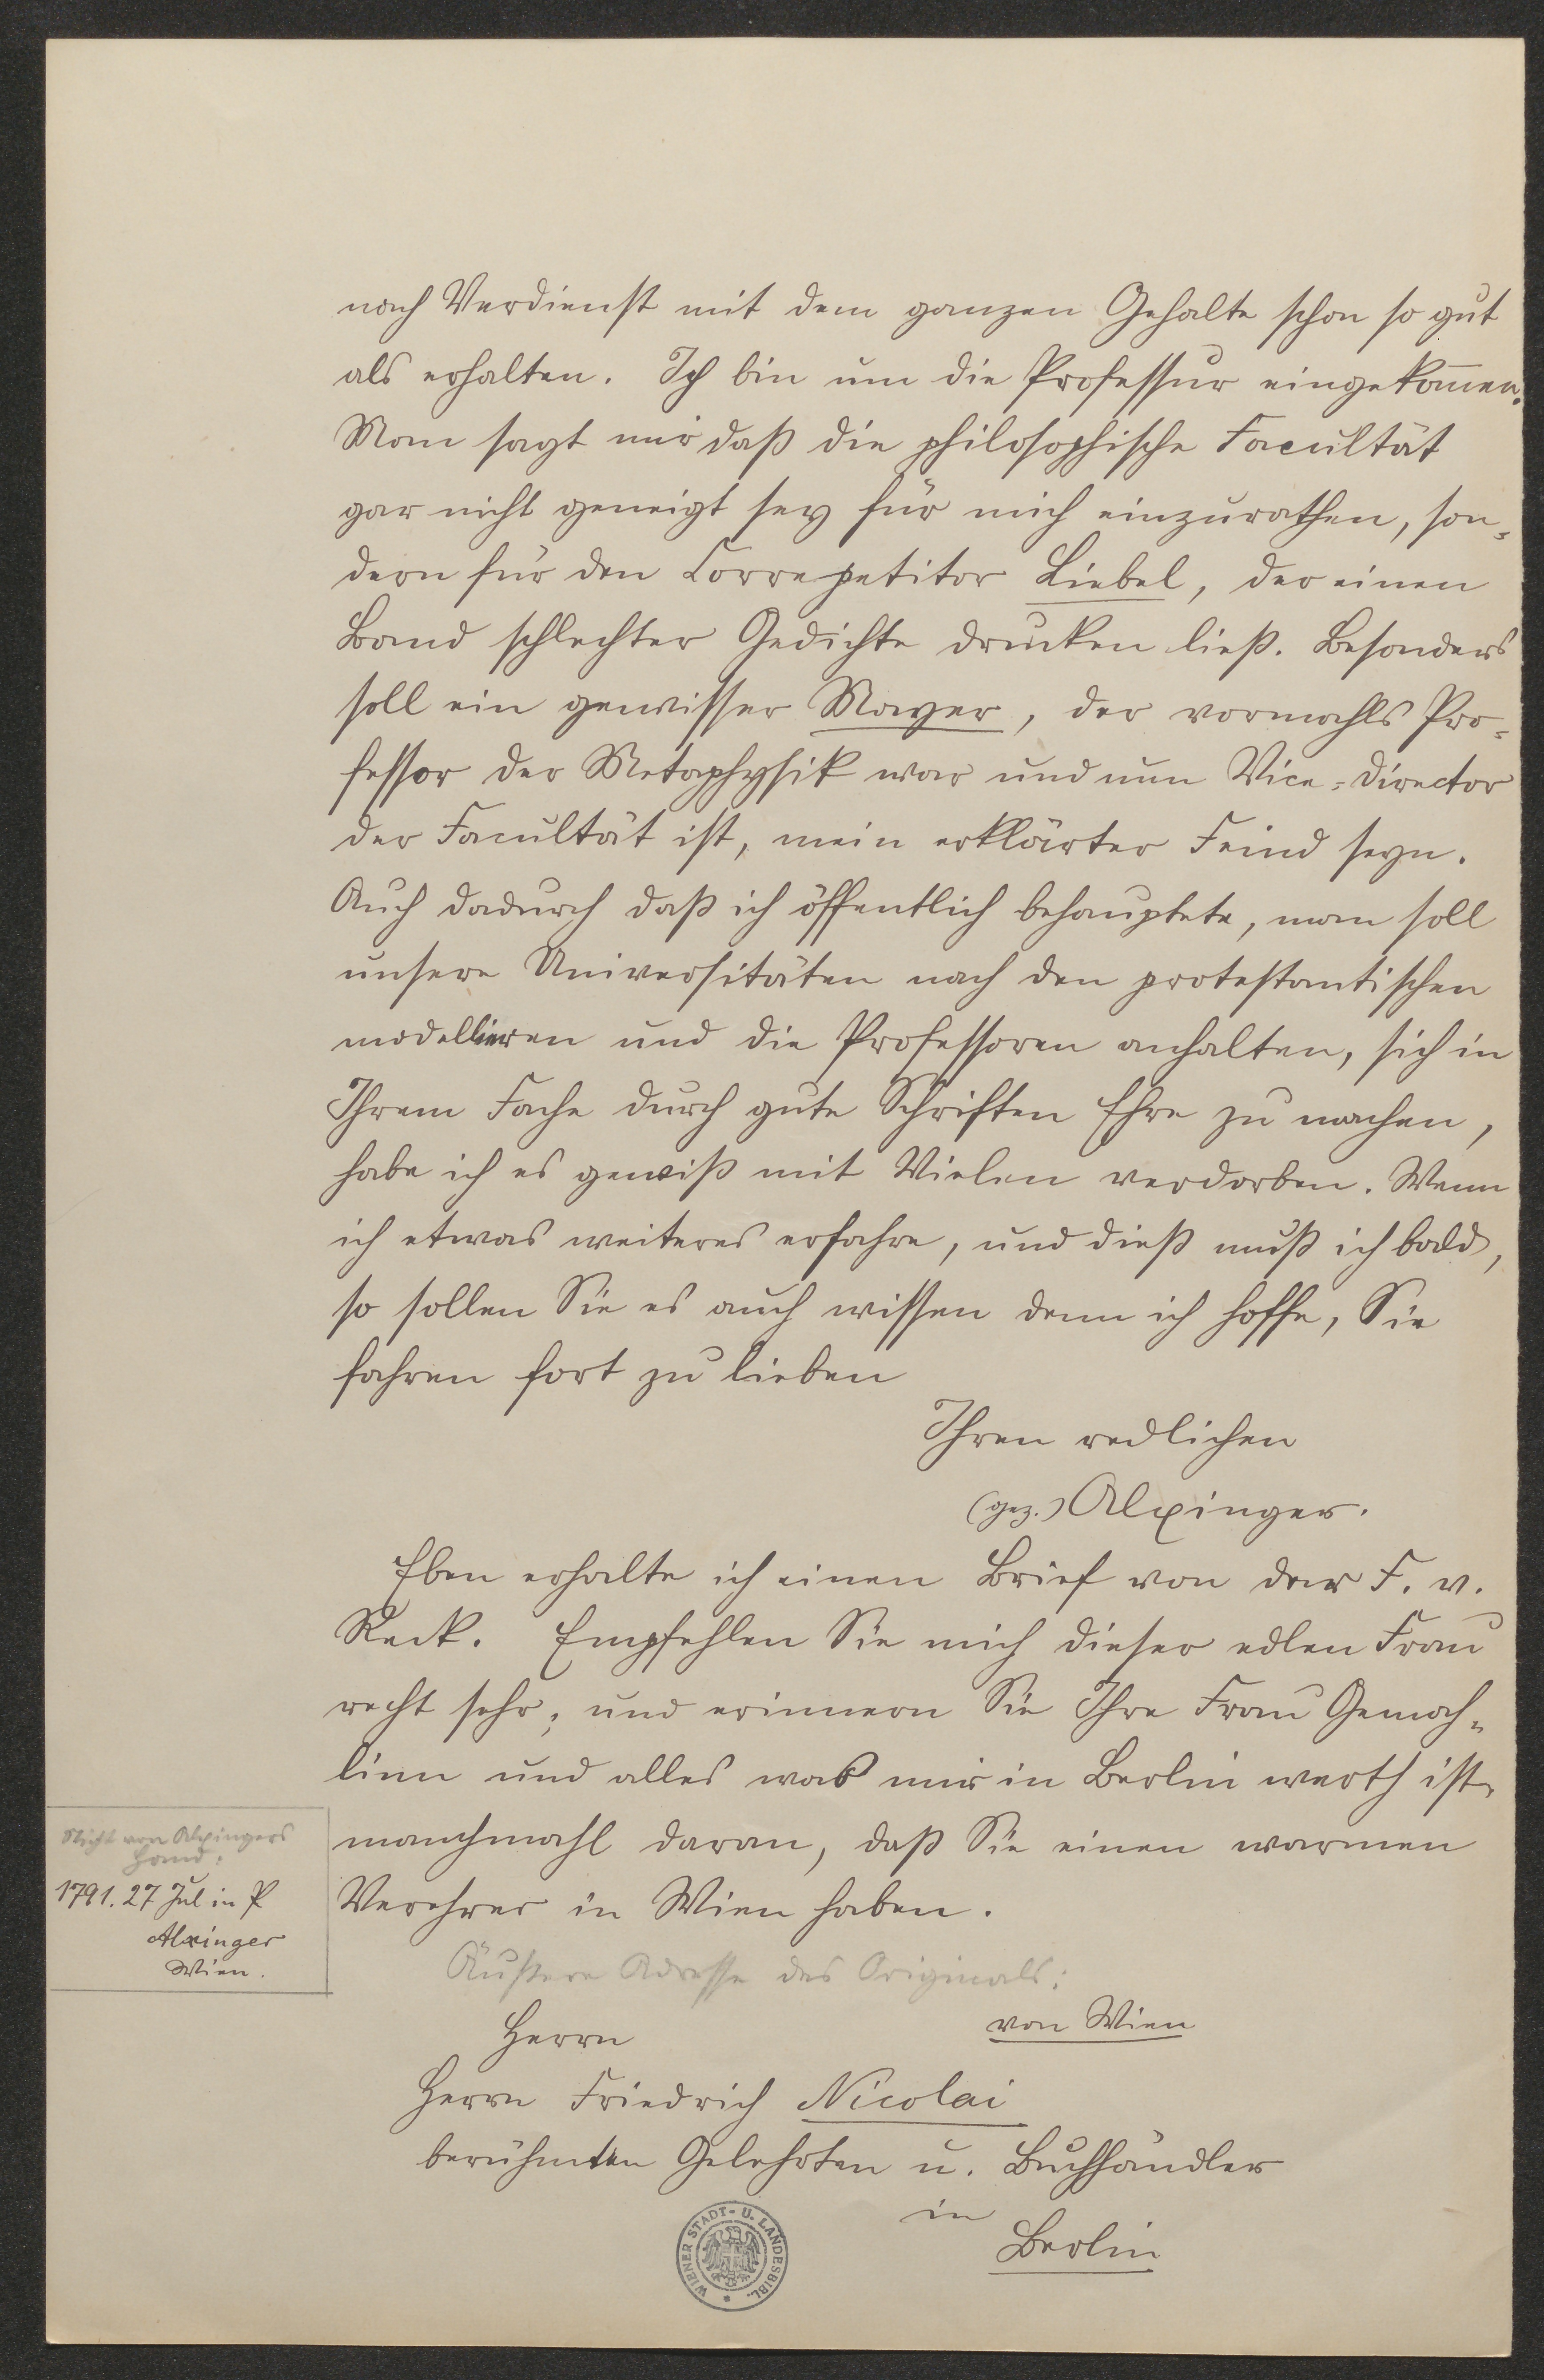 nach Verdienst mit dem ganzen Gehalte schon so gut
als erhalten. Ich bin um die Professur eingekom̄en.
Man sagt mir daß die philosophische Facultät
gar nicht geneigt sey für mich einzurathen, son-
dern für den Correpetitor Liebel, der einen
Band schlechter Gedichte drucken ließ. Besonders
soll ein gewisser Mayer, der vormahls Pro-
fessor der Metaphysik war und nun Vice-Director
der Facultät ist, mein erklärter Feind seyn.
Auch dadurch daß ich öffentlich behauptete, man soll
unsere Universitäten nach den protestantischen
modellieren und die Professoren anhalten, sich in
Ihrem Fache durch gute Schriften Ehre zu machen,
habe ich es gewiß mit Vielen verdorben. Wenn
ich etwas weiteres erfahre, und dieß muß ich bald,
so sollen Sie es auch wissen denn ich hoffe, Sie
fahren fort zu lieben
Ihren redlichen
(gez.) Alxinger.
Eben erhalte ich einen Brief von der F. v.
Reck. Empfehlen Sie mich dieser edlen Frau
recht sehr; und erinnern Sie Ihre Frau Gemah-
linn und alles was mir in Berlin werth ist,
manchmahl daran, daß Sie einen warmen
Verehrer in Wien haben.
Nicht von Alxingers
Hand:
1791. 27 Jul in P
Alxinger
Wien.
Äußere Adresse des Originals:
Herrn
von Wien
Herrn Friedrich Nicolai
berühmten Gelehrten u. Buchhändler
in
Berlin
WIENER STADT- U. LANDESBIBL.